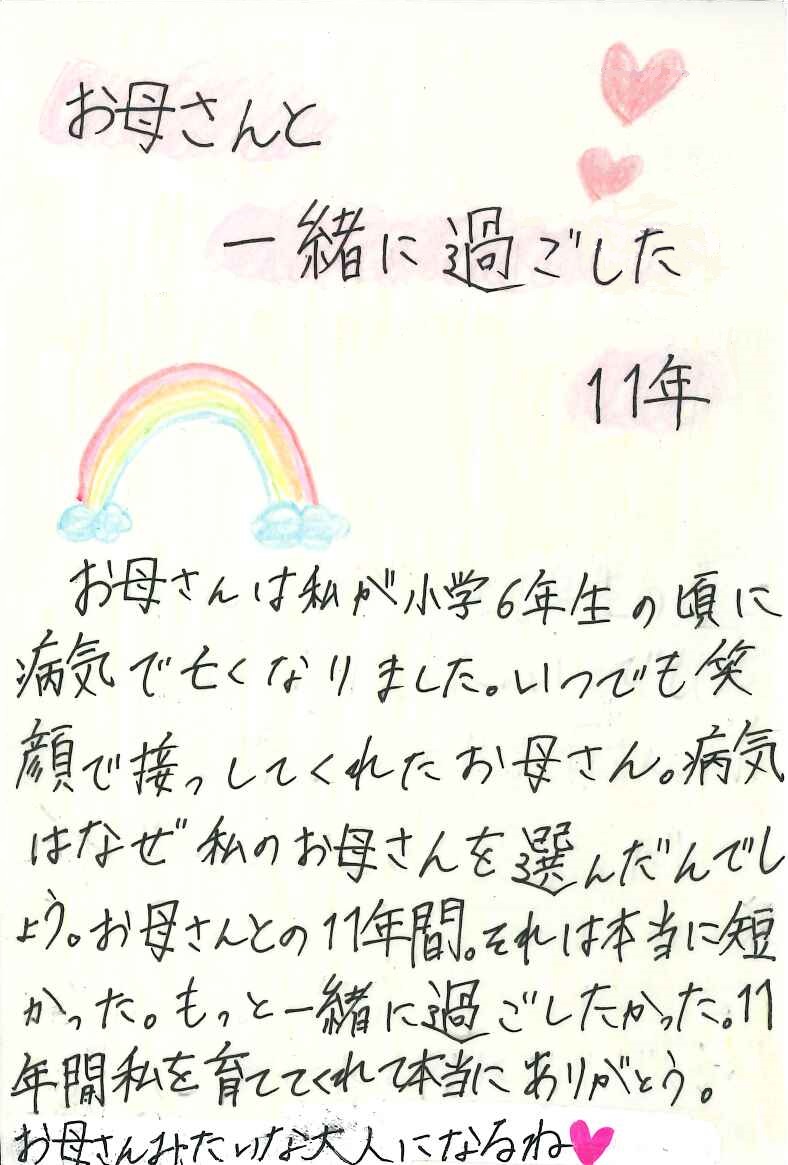 お母さんと
一緒に過ごした
11年
お母さんは私が小学6年生の頃に
病気で亡くなりました。いつでも笑
顔で接っしてくれたお母さん。病気
はなぜ私のお母さんを選んだんでし
ょう。お母さんとの11年間。それは本当に短
かった。もっと一緒に過ごしたかった。11
年間私を育ててくれて本当にありがとう。
お母さんみたいな大人になるね